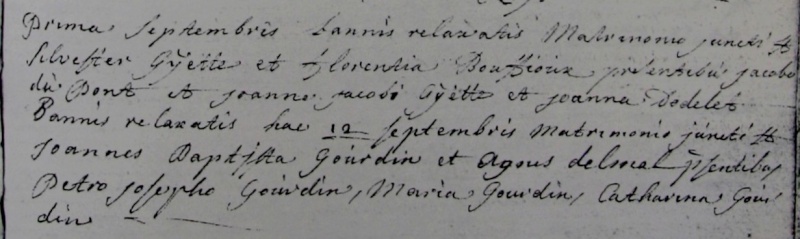 Prima Septembris bannis relaxatis Matrimonio juncti st
Silvester Gÿette et florentia Bouffioux presentibus jacobo
du Pont et joanne jacobi Gÿette et joanna Dodelet
Bannis relaxatis hac 12 septembris Matrimonio juncti st
Joannes Baptista Gourdin et agnus delmal psentibus
Petro josepho Gourdin, Maria Gourdin, Catharina Gour
din